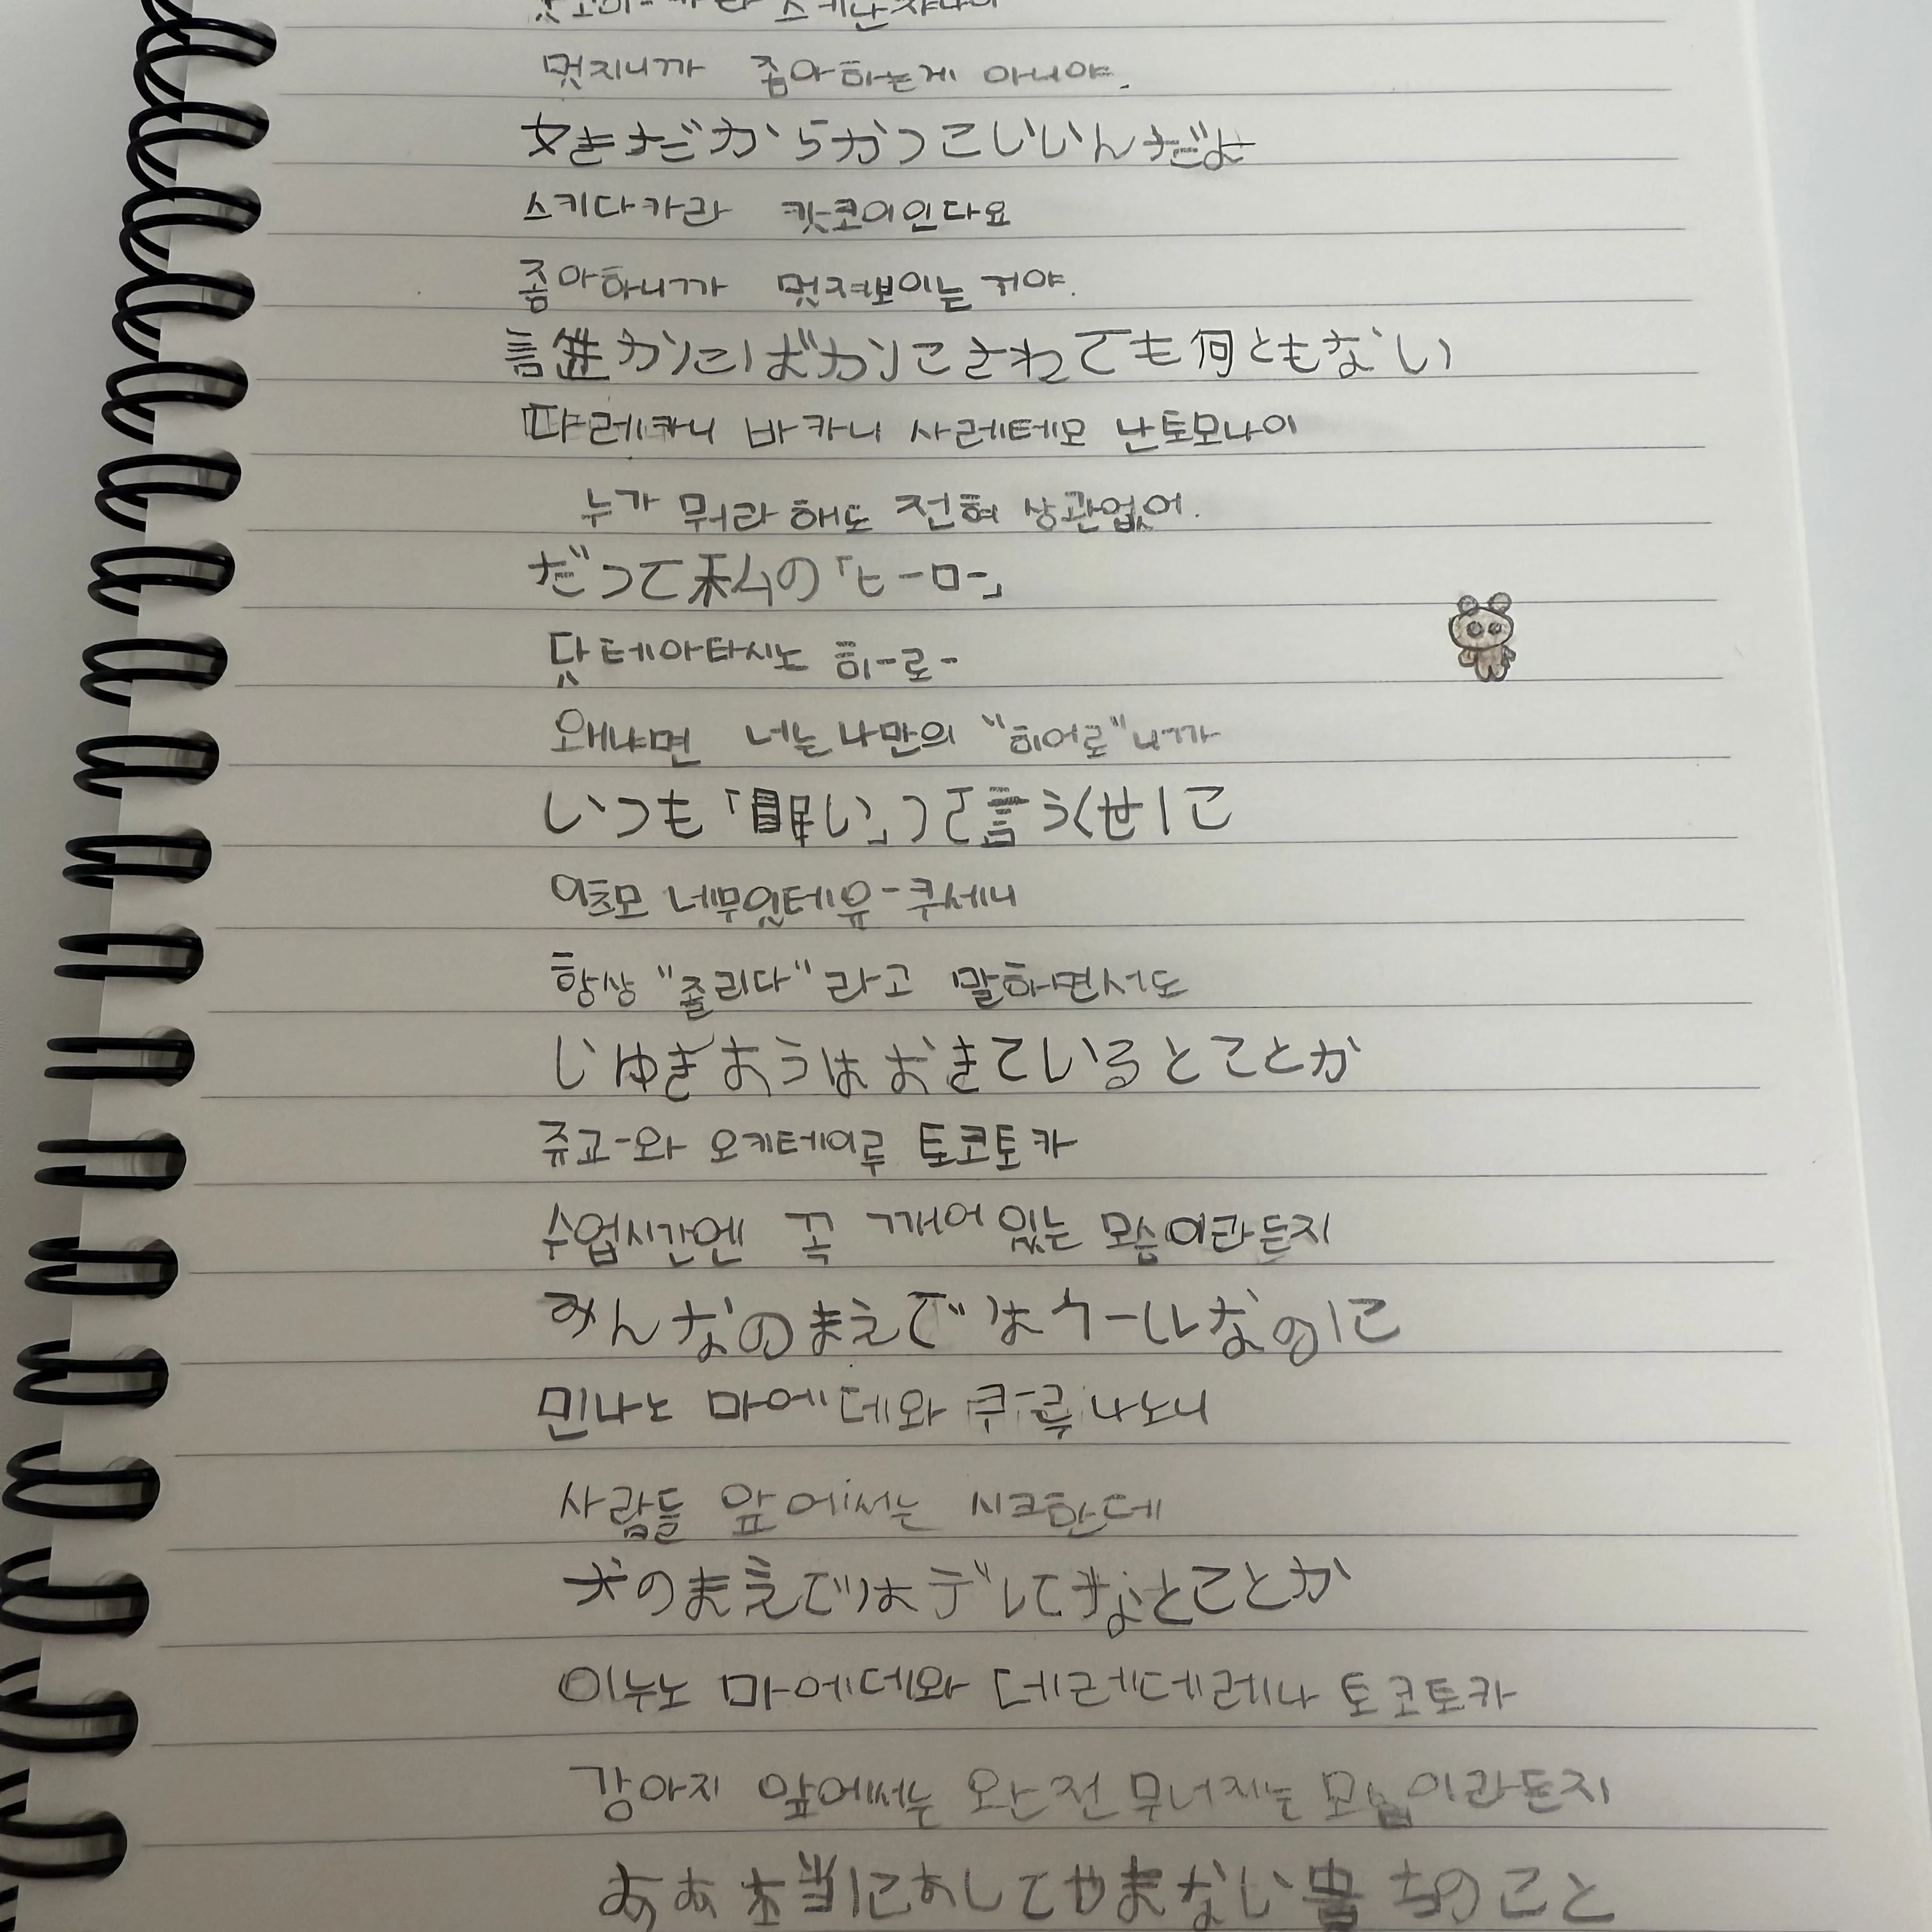 멋지니까 좋아하는게 아니야.
好きだからかっこいいんだよ
스키다카라 캇코이인다요
좋아하니까 멋져보이는 거야.
誰かにばかにされても何ともない
다레카니 바카니 사레테모 난토모나이
누가 뭐라 해도 전혀 상관없어.
だって私の「ヒーロー」
닷테아타시노 히-로-
왜냐면 너는 나만의 "히어로"니까
いつも「眠い」って言うくせに
이츠모 네무잇테유-쿠세니
항상 "졸리다"라고 말하면서도
じゅぎょうはおきているとことか
쥬교-와 오키테이루 토코토카
수업시간엔 꼭 깨어있는 모습이라든지
みんなのまえではクールなのに
민나노 마에데와 쿠-루 나노니
사람들 앞에서는 시크한데
犬のまえではデレてなとことか
이누노 마에데와 데레데레나 토코토카
강아지 앞에서는 완전 무너지는 모습이라든지
ああ本当にあいしてやまない のこと